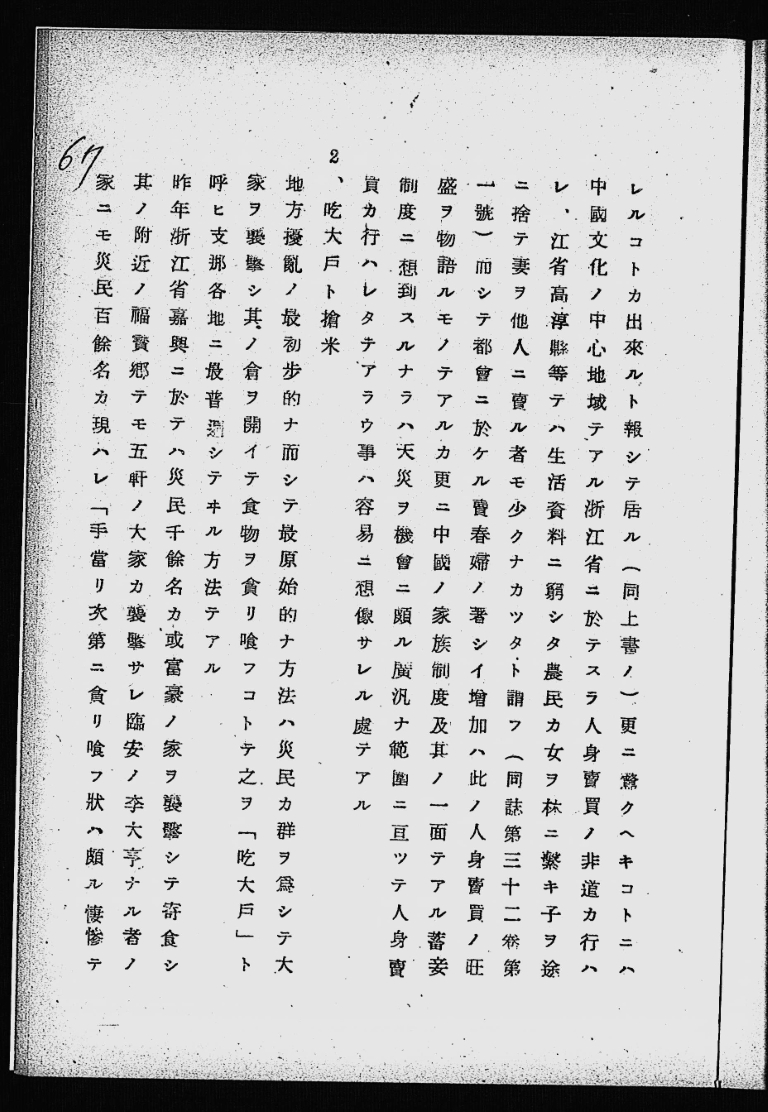 レルコトカ出來ルト報シテ居ル（同上書ノ）更ニ驚クヘキコトニハ
中國文化ノ中心地域テアル浙江省ニ於テスラ人身賣買ノ非道カ行ハ
レ、江省高淳縣等テハ生活資料ニ窮シタ農民カ女ヲ林ニ繫キ子ヲ途
ニ捨テ妻ヲ他人ニ賣ル者モ少クナカツタト謂フ（同誌第三十二卷第
一號）而シテ都會ニ於ケル賣春婦ノ著シイ增加ハ此ノ人身賣買ノ旺
盛ヲ物語ルモノテアルカ更ニ中國ノ家族制度及其ノ一面テアル蓄妾
制度ニ想到スルナラハ天災ヲ機會ニ頗ル廣汎ナ範圍ニ亘ツテ人身賣
買カ行ハレタテアラウ事ハ容易ニ想像サレル處テアル
2、吃大戶ト搶米
地方擾亂ノ最初步的ナ而シテ最原始的ナ方法ハ災民カ群ヲ爲シテ大
家ヲ襲擊シ其ノ倉ヲ開イテ食物ヲ貪リ喰フコトテ之ヲ「吃大戶」ト
呼ヒ支那各地ニ最普遍シテヰル方法テアル
昨年浙江省嘉興ニ於テハ災民千餘名カ或富豪ノ家ヲ襲擊シテ寄食シ
其ノ附近ノ福賢鄉テモ五軒ノ大家カ襲擊サレ臨安ノ李大亨ナル者ノ
家ニモ災民百餘名カ現ハレ「手當リ次第ニ貪リ喰フ狀ハ頗ル悽慘テ
67